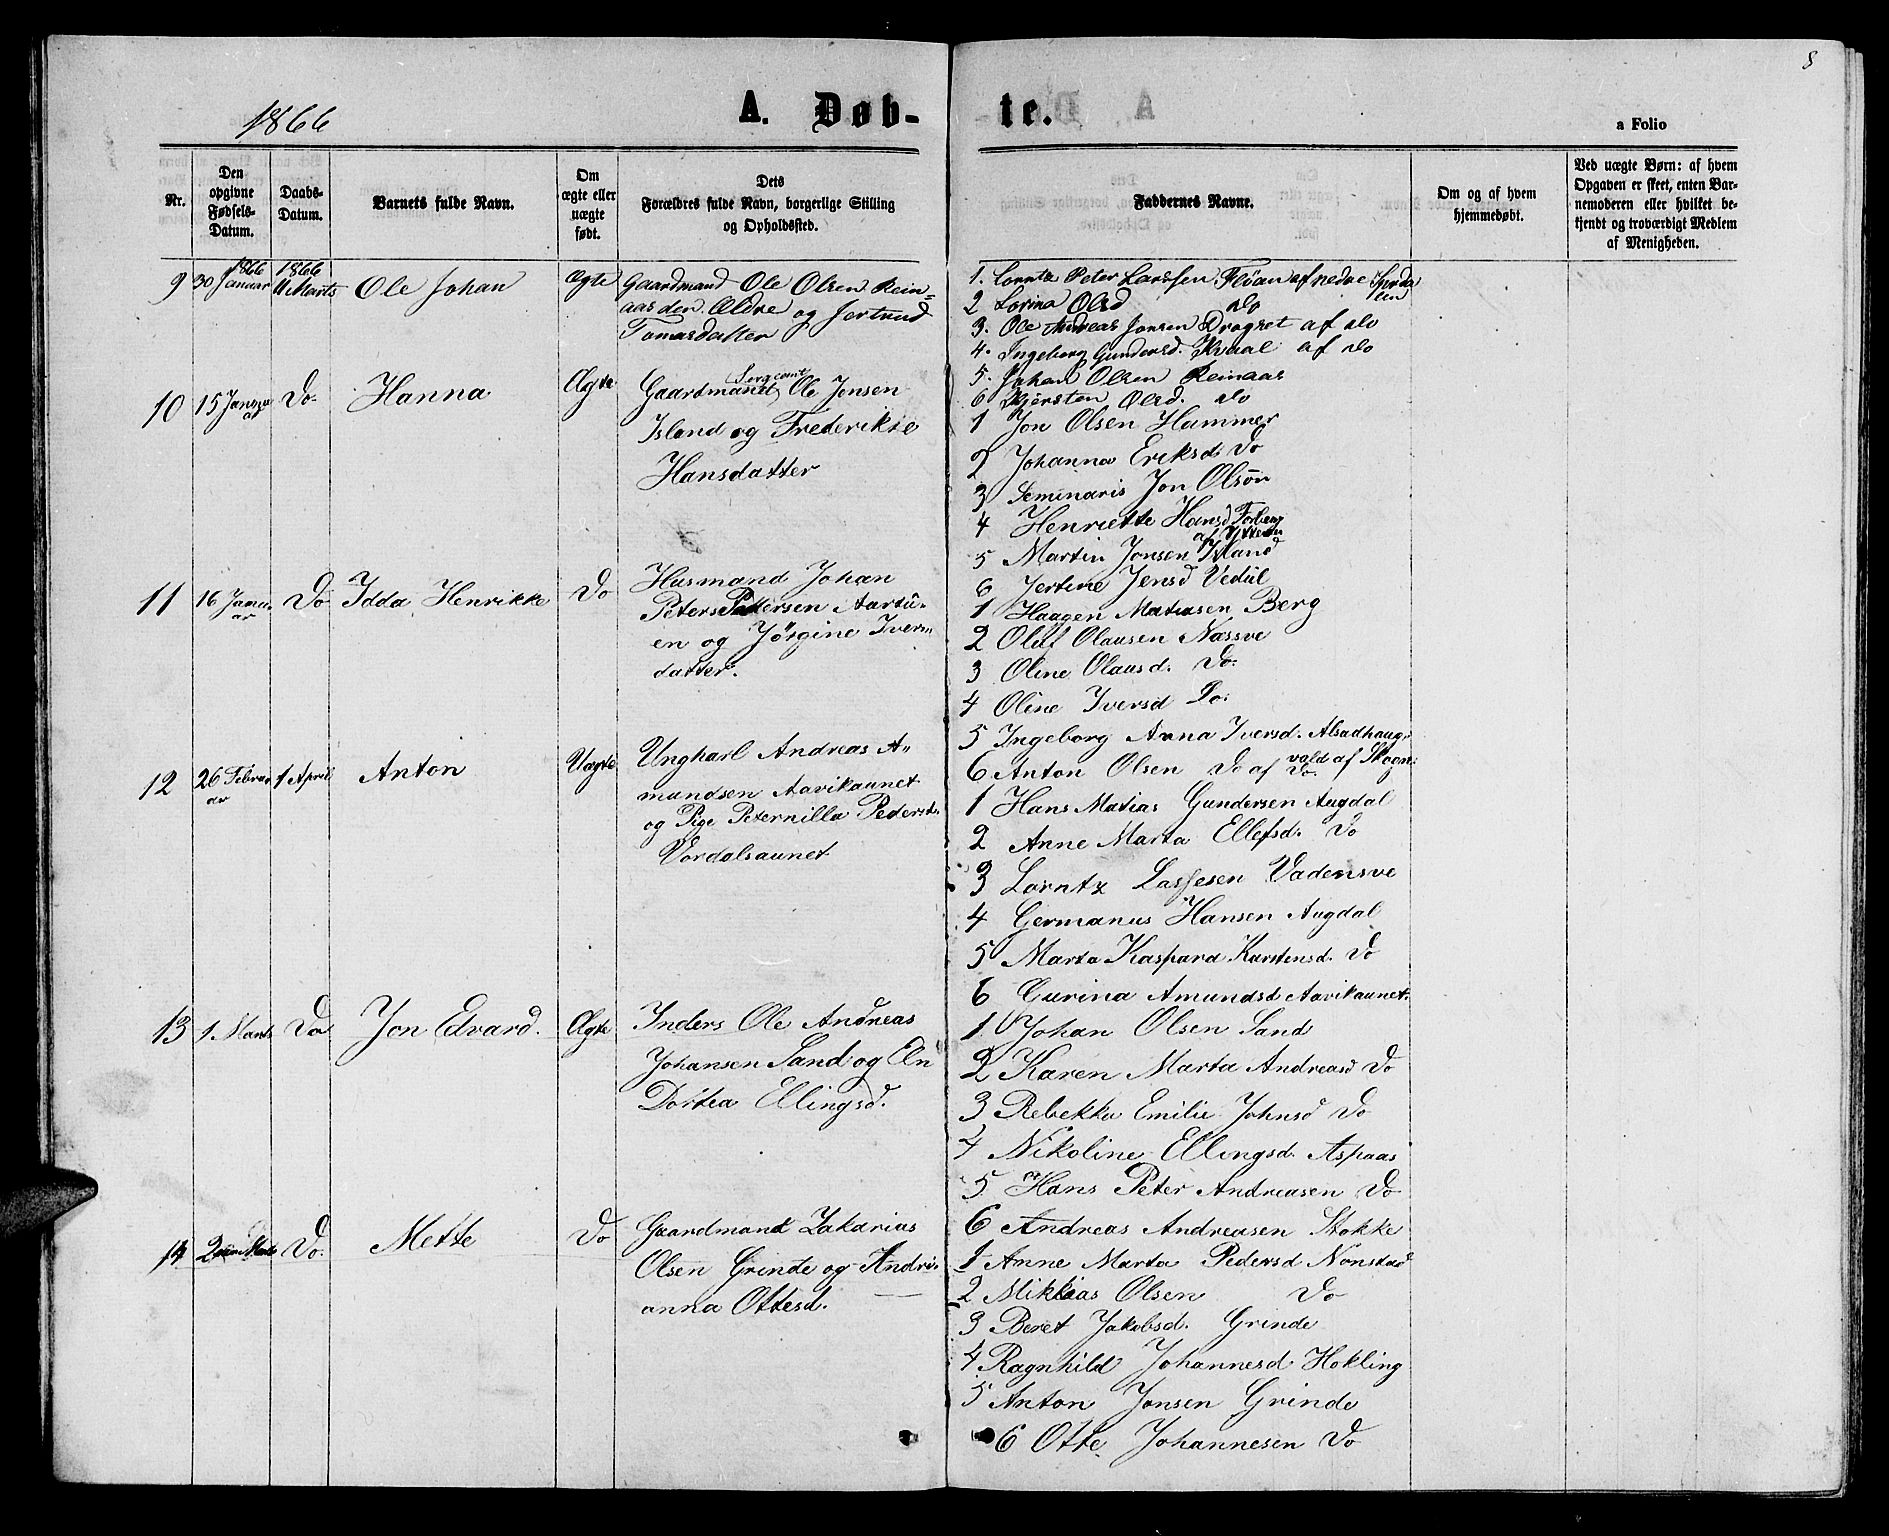 8
1866
A. Døb-
te.
a Folio
Nr.
Den opgivne Fødsels-Datum.
Daabs-Datum.
Barnets fulde Navn.
Om ægte eller uægte født.
Dets Forældres fulde Navn, borgerlige Stilling og Opholdssted.
Faddernes Navne.
Om og af hvem hjemmedøbt.
Ved uægte Børn: af hvem Opgaven er skeet, enten Barnemoderen eller hvilket bekjendt og troværdigt Medlem af Menigheden.
1866 1866
9 30 Januar 11 Marts Ole Johan Ægte Gaardmand Ole Olsen Rein-
aas den Ældre og Jertrud
Tomasdatter
1. Lorntz Peter Larssen Floan af nedre
2 Lorina Olsd do
3. Ole Andreas Jonsen Dragset af do
4. Ingeborg Gundersd. Kvaal af do
5. Johan Olsen Reinaas
6 Kjersten Olsd. do
10 15 Januar Do. Hanna Ægte Gaardmand Sergeant Ole Jensen
Island og Frederikke
Hansdatter
1 Jon Olsen Hammer
2 Johanna Eriksd. Do
3 Seminaris Jon Olsøn
4 Henriette Hansd Forberg
af Ytterøn
5 Martin Jonsen Island
6 Jertine Jensd Vedul
11 16 Januar Do Idda Henrikke Do Husmand Johan
Peter Petersen Aartu-
en og Jørgine Ivers-
datter.
1 Haagen Matiasen Berg
2 Oluf Olausen Næssve
3 Oline Olausd. Do.
4 Oline Iversd Do.
5 Ingeborg Anna Iversd. Alsadhaug
6 Anton Olsen Do af Do. vald af Skogn.
12 26 Februar 1 April Anton Uægte Ungkarl Andreas A-
mundsen Aavikaunet
og Pige Peternilla Pedersd.
Vordalsaunet
1 Hans Matias Gundersen Augdal
2 Anne Marta Ellefsd. Do
3 Lorntz Lassesen Vadensve
4 Germanus Hansen Augdal
5 Marta Kaspara Karstensd. Do
6 Curina Amundsd Aavikaunet.
13 1. Marts Do Jon Edvard. Ægte Inders Ole Andreas
Johansen Sand og Eln
Dortea Ellingsd.
1 Johan Olsen Sand
2 Karen Marta Andreasd Do
3 Rebekka Emilie Johnsd Do
4 Nikoline Ellingsd. Aspaas
5 Hans Peter Andreasen Do
6 Andreas Andreasen Stokke
14 2 Marts Do. Mette Do Gaardmand Zakarias
Olsen Grinde og Andri-
anna Ottesd.
1 Anne Marta Pedersd Nonstad
2 Miklias Olsen Do
3 Beret Jakobsd. Grinde
4 Ragnhild Johannesd Hokling
5 Anton Jonsen Grinde
6 Otte Johannesen Do